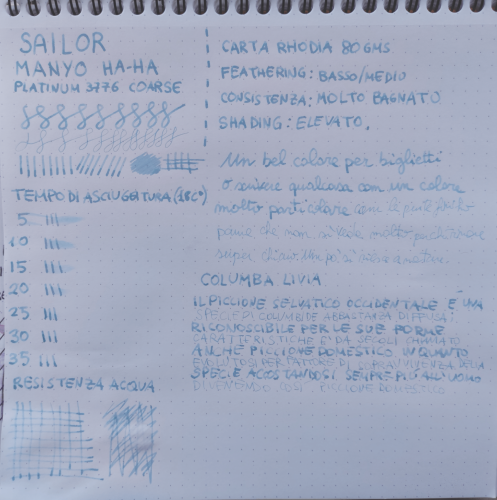 SAILOR
MANYO HA-HA
PLATINUM 3776 COARSE
TEMPO DI ASCIUGATURA (18C°)
5
10
15
20
25
30
35
RESISTENZA ACQUA
CARTA RHODIA 80GMS
FEATHERING: BASSO/MEDIO
CONSISTENZA: MOLTO BAGNATO
SHADING: ELEVATO.
Un bel colore per biglietti
o scrivere qualcosa con un colore
molto particolare
che non si
super
COLUMBA LIVIA
IL PICCIONE SELVATICO OCCIDENTALE È UNA
SPECIE DI COLUMBIDE ABBASTANZA DIFFUSA.
RICONOSCIBILE PER LE SUE FORME
CARATTERISTICHE E DA SECOLI CHIAMATO
ANCHE PICCIONE DOMESTICO IN QUANTO
DELLA
SPECIE ACCOSTANDOSI SEMPRE PIÙ ALL'UOMO
DIVENENDO COSÌ PICCIONE DOMESTICO